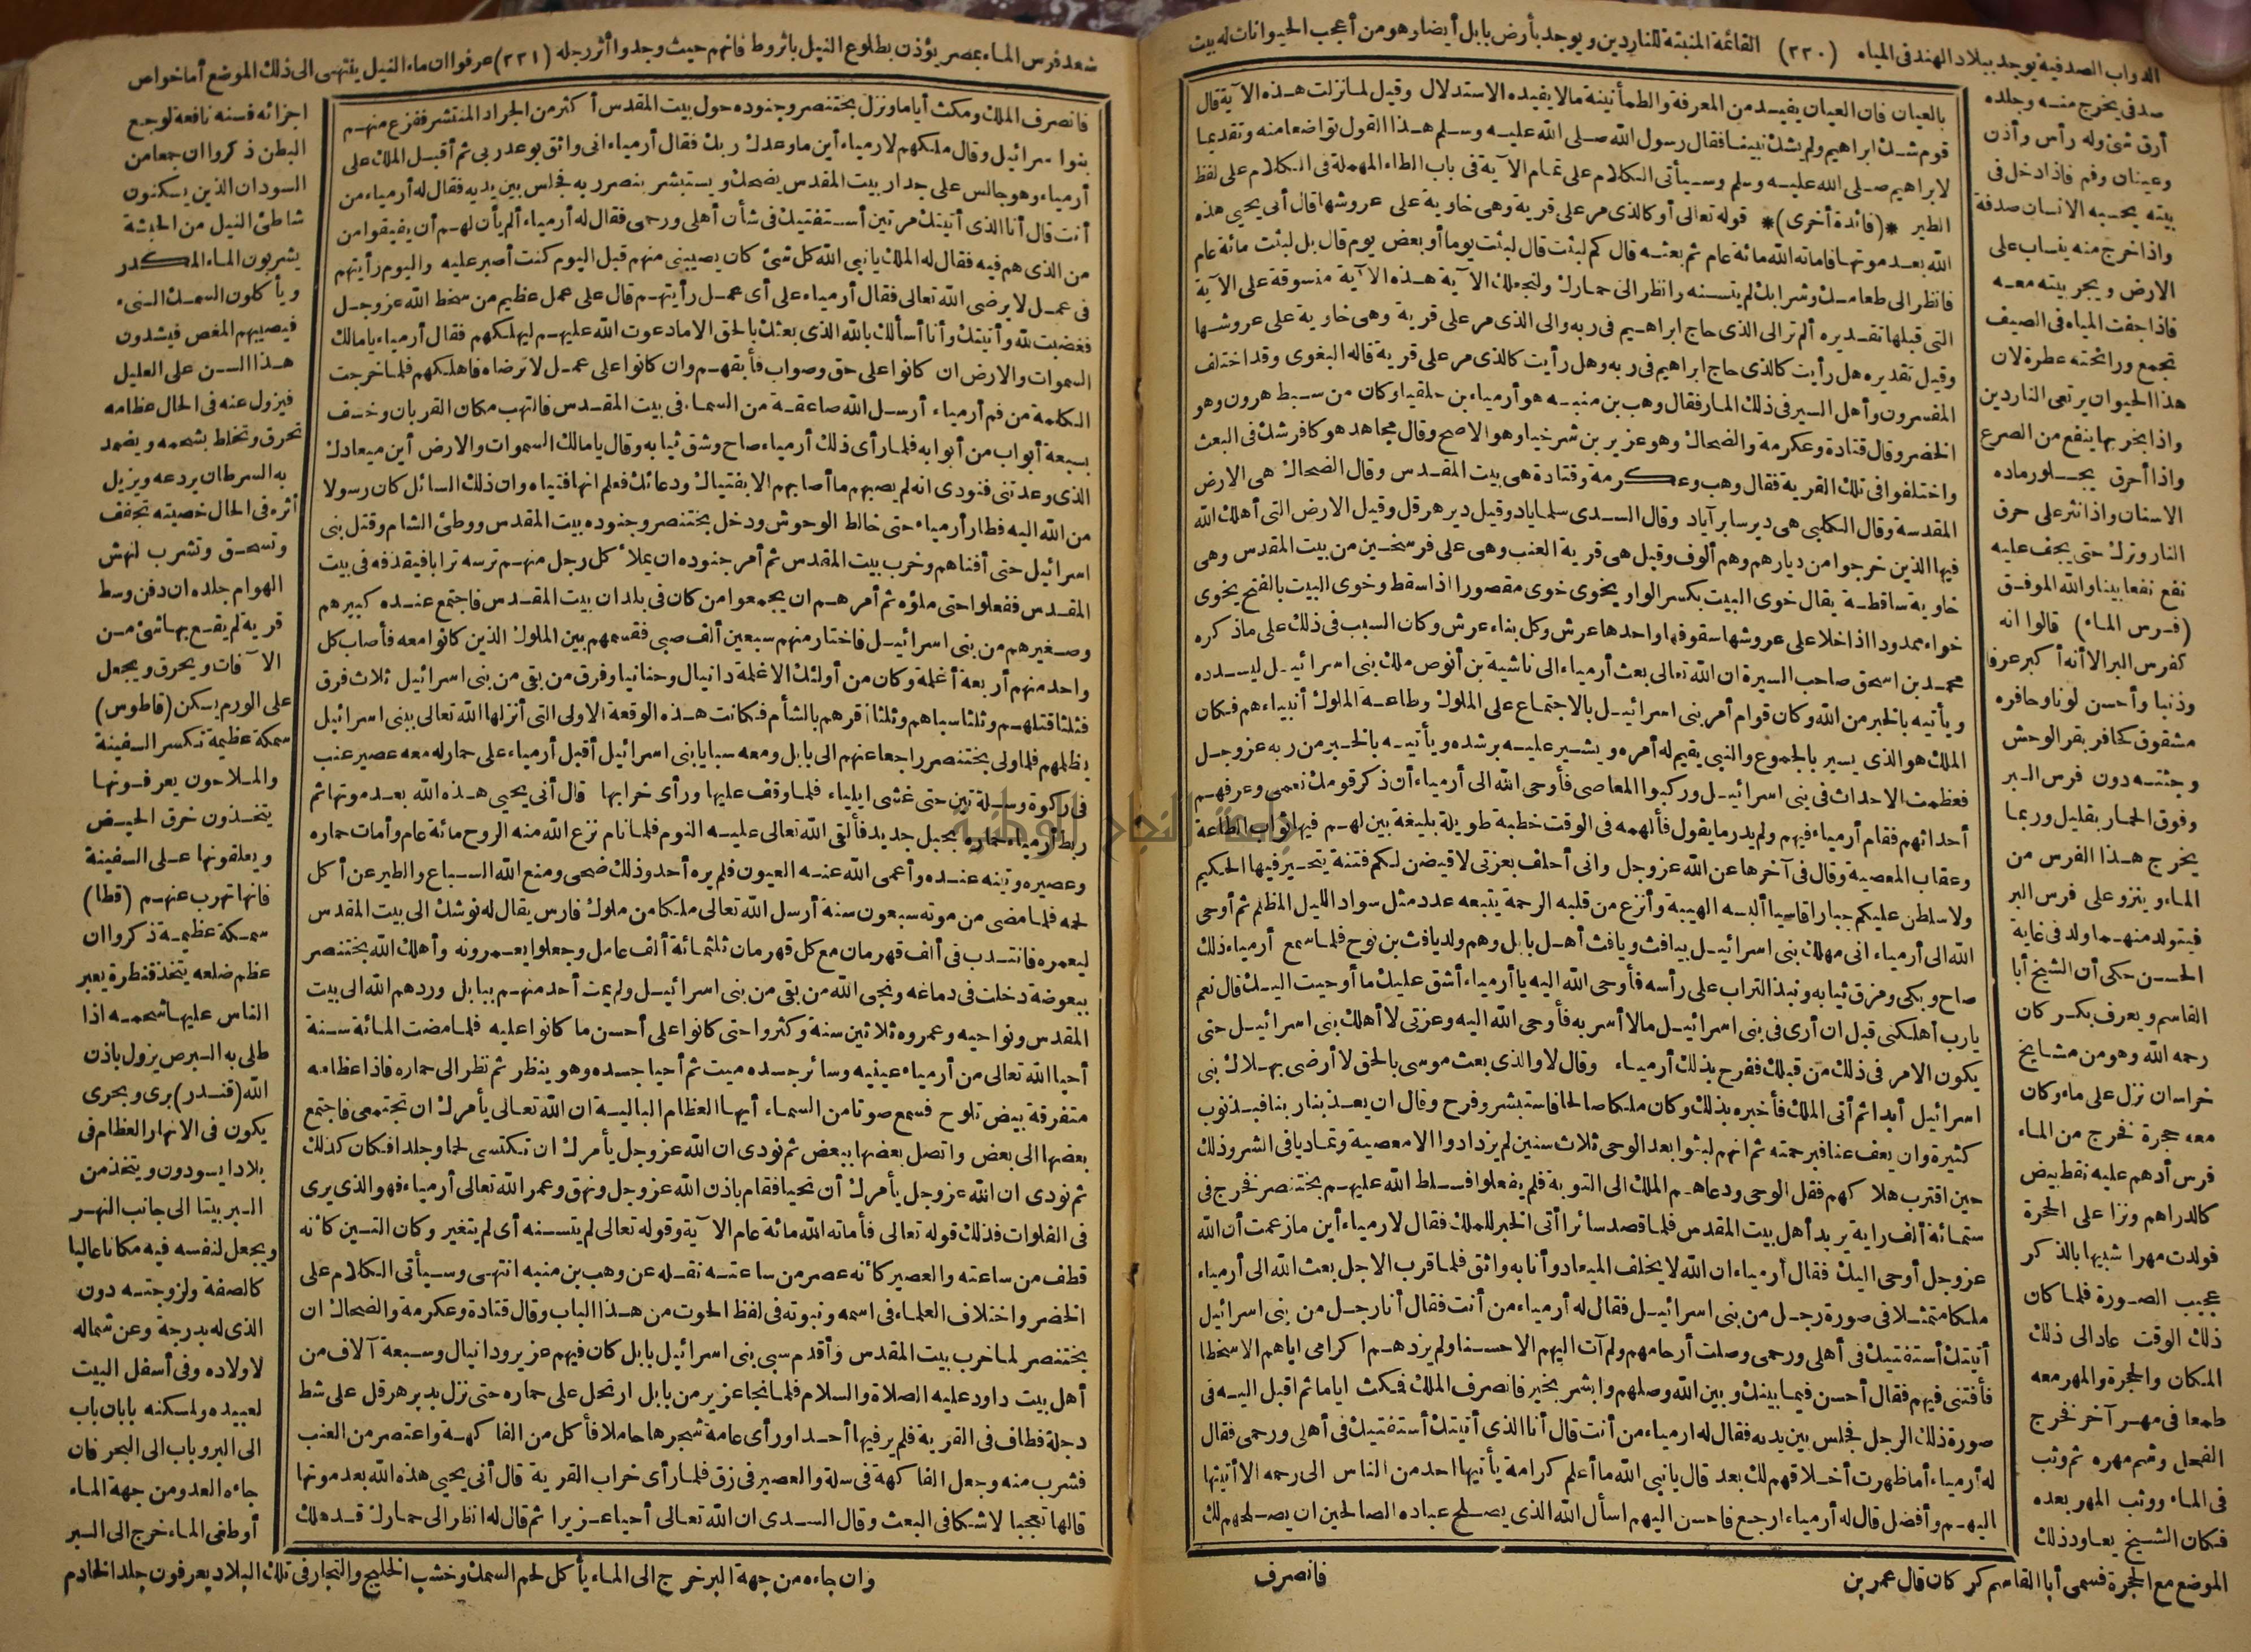 الدواب الصدفية يوجد ببلاد الهند فى المياه (٢٣٠) القائمة المنبتة للناردين ويوجد بأرض بابل أيضا وهو من أعجب الحيوانات له بيت
صدفى يخرج منه وجلده
أرق شئ وله رأس وأذن
وعينان وفم فاذا دخل فى
بيته يحسبه الانسان صدفة
واذا خرج منه ينساب على
الارض ويجر بيته معه
فاذا جفت المياه فى الصيف
تجمع ورائحته عطرة لان
هذا الحيوان يرتعى الناردين
واذا بخر بها ينفع من الصرع
واذا أحرق يجلو رماده
الاسنان واذا نثر على حرق
النار وترك حتى يجف عليه
نفع نفعا بينا والله الموفق
(فرس الماء) قالوا انه
كفرس البر الا أنه أكبر عرفا
وذنبا وأحسن لونا وحافره
مشقوق كحافر بقر الوحش
وجثته دون فرس البر
وفوق الحمار بقليل وربما
يخرج هذا الفرس من
الماء وينزو على فرس البر
فيتولد منهما ولد فى غاية
الحسن حكى أن الشيخ أبا
القاسم ويعرف بكركان
رحمه الله وهو من مشايخ
خراسان نزل على ماء وكان
معه حجرة فخرج من الماء
فرس أدهم عليه نقط بيض
كالدراهم ونزا على الحجرة
فولدت مهرا شبيها بالذكر
عجيب الصورة فلما كان
ذلك الوقت عاد الى ذلك
المكان والحجرة والمهر معه
طمعا فى مهر آخر فخرج
الفحل وشم مهره ثم وثب
فى الماء ووثب المهر بعده
فكان الشيخ يعاود ذلك
الموضع مع الحجرة فسمى أبا القاسم كركان قال عمر بن
بالعيان فان العيان يفيد من المعرفة والطمأنينة مالا يفيده الاستدلال وقيل لما نزلت هذه الآية قال
قوم شك ابراهيم ولم يشك نبينا فقال رسول الله صلى الله عليه وسلم هذا القول تواضعا منه وتقديما
لابراهيم صلى الله عليه وسلم وسيأتى الكلام على تمام الآية فى باب الطاء المهملة فى الكلام على لفظ
الطير *(فائدة أخرى)* قوله تعالى أو كالذى مر على قرية وهى خاوية على عروشها قال أنى يحيى هذه
الله بعد موتها فاماته الله مائة عام ثم بعثه قال كم لبثت قال لبثت يوما أو بعض يوم قال بل لبثت مائة عام
فانظر الى طعامك وشرابك لم يتسنه وانظر الى حمارك ولنجعلك الآية هذه الآية منسوقة على الآية
التى قبلها تقديره ألم تر الى الذى حاج ابراهيم فى ربه والى الذى مر على قرية وهى خاوية على عروشها
وقيل تقديره هل رأيت كالذى حاج ابراهيم فى ربه وهل رأيت كالذى مر على قرية قاله البغوى وقد اختلف
المفسرون وأهل السير فى ذلك المار فقال وهب بن منبه هو أرمياء بن حلقيا وكان من سبط هرون وهو
الخضر وقال قتادة وعكرمة والضحاك وهو عزير بن شرخيا وهو الاصح وقال مجاهد هو كافر شك فى البعث
واختلفوا فى تلك القرية فقال وهب وعكرمة وقتادة هى بيت المقدس وقال الضحاك هى الارض
المقدسة وقال الكلبى هى دير سابر آباد وقال السدى سلماباد وقيل دير هرقل وقيل الارض التى أهلك الله
فيها الذين خرجوا من ديارهم وهم ألوف وقيل هى قرية العنب وهى على فرسخين من بيت المقدس وهى
خاوية ساقطة يقال خوى البيت بكسر الواو يخوى خوى مقصورا اذا سقط وخوى البيت بالفتح يخوى
خواء ممدودا اذا خلا على عروشها سقوفها واحدها عرش وكل بناء عرش وكان السبب فى ذلك على ما ذكره
محمد بن اسحق صاحب السيرة ان الله تعالى بعث أرمياء الى ناشية بن أنوص ملك بنى اسرائيل ليسدده
ويأتيه بالخبر من الله وكان قوام أمر بنى اسرائيل بالاجتماع على الملوك وطاعة الملوك أنبياءهم فكان
الملك هو الذى يسير بالجموع والنبى يقيم له أمره ويشير عليه برشده ويأتيه بالخبر من ربه عز وجل
فعظمت الاحداث فى بنى اسرائيل وركبوا المعاصى فأوحى الله الى أرمياء أن ذكر قومك نعمى وعرفهم
أحداثهم فقام أرمياء فيهم ولم يدر ما يقول فألهمه فى الوقت خطبة طويلة بليغة بين لهم فيها ثواب الطاعة
وعقاب المعصية وقال فى آخرها عن الله عز وجل وانى أحلف بعزتى لاقيضن لكم فتنة يتحير فيها الحكيم
ولاسلطن عليكم جبارا قاسيا ألبسه الهيبة وأنزع من قلبه الرحمة يتبعه عدد مثل سواد الليل المظلم ثم أوحى
الله الى أرمياء انى مهلك بنى اسرائيل بيافث ويافث أهل بابل وهم ولد يافث بن نوح فلما سمع أرمياء ذلك
صاح وبكى ومزق ثيابه ونبذ التراب على رأسه فأوحى الله اليه يا أرمياء أشق عليك ما أوحيت اليك قال نعم
يارب أهلكنى قبل ان أرى فى بنى اسرائيل مالا أسر به فأوحى الله اليه وعزتى لا أهلك بنى اسرائيل حتى
يكون الامر فى ذلك من قبلك ففرح بذلك أرمياء وقال لا والذى بعث موسى بالحق لا أرضى بهلاك بنى
اسرائيل أبدا ثم أتى الملك فأخبره بذلك وكان ملكا صالحا فاستبشر وفرح وقال ان يعذبنا ربنا فبذنوب
كثيرة وان يعف عنا فبرحمته ثم انهم لبثوا بعد الوحى ثلاث سنين لم يزدادوا الا معصية وتماديا فى الشر وذلك
حين اقترب هلاكهم فقل الوحى ودعاهم الملك الى التوبة فلم يفعلوا فسلط الله عليهم بختنصر فخرج فى
ستمائة ألف راية يريد أهل بيت المقدس فلما فصد سائرا أتى الخبر للملك فقال لارمياء أين ما زعمت أن الله
عز وجل أوحى اليك فقال أرمياء ان الله لا يخلف الميعاد وأنا به واثق فلما قرب الاجل بعث الله الى أرمياء
ملكا متمثلا فى صورة رجل من بنى اسرائيل فقال له أرمياء من أنت فقال أنا رجل من بنى اسرائيل
أتيتك أستفتيك فى أهلى ورحمى وصلت أرحامهم ولم آت اليهم الا حسنا ولم يزدهم اكرامى اياهم الا سخطا
فأفتنى فيهم فقال أحسن فيما بينك وبين الله وصلهم وابشر بخير فانصرف الملك فمكث اياما ثم اقبل اليه فى
صورة ذلك الرجل فجلس بين يديه فقال له ارمياء من أنت قال أنا الذى أتيتك أستفتيك فى أهلى ورحمى فقال
له أرمياء أما ظهرت أخلاقهم لك بعد قال يا نبى الله ما أعلم كرامة يأتيها احد من الناس الى رحمه الا أتيتها
اليهم وأفضل قال له أرمياء ارجع فاحسن اليهم اسأل الله الذى يصلح عباده الصالحين ان يصلحهم لك
فانصرف
شعد فرس الماء بمصر يؤذن بطلوع النيل باثروط فانهم حيث وجدوا أثر رجله (٢٣١) عرفوا ان ماء النيل ينتهى الى ذلك الموضع أما خواص
فانصرف الملك ومكث أياما ونزل بختنصر وجنوده حول بيت المقدس أكثر من الجراد المنتشر ففزع منهم
بنوا اسرائيل وقال ملكهم لارمياء أين ما وعدك ربك فقال أرمياء انى واثق بوعد ربى ثم أقبل الملك على
أرمياء وهو جالس على جدار بيت المقدس يضحك ويستبشر بنصر ربه فجلس بين يديه فقال له أرمياء من
أنت قال أنا الذى أتيتك مرتين أستفتيك فى شأن أهلى ورحمى فقال له أرمياء ألم يأن لهم أن يفيقوا من
من الذى هم فيه فقال له الملك يا نبى الله كل شئ كان يصيبنى منهم قبل اليوم كنت أصبر عليه واليوم رأيتهم
فى عمل لا يرضى الله تعالى فقال أرمياء على أى عمل رأيتهم قال على عمل عظيم من سخط الله عز وجل
فغضبت لله وأتيتك وأنا أسألك بالله الذى بعثك بالحق الا ما دعوت الله عليهم ليهلكهم فقال أرمياء يا مالك
السموات والارض ان كانوا على حق وصواب فأبقهم وان كانوا على عمل لا ترضاه فاهلكهم فلما خرجت
الكلمة من فم أرمياء أرسل الله صاعقة من السماء فى بيت المقدس فالتهب مكان القربان وخسف
بسبعة أبواب من أبوابه فلما رأى ذلك أرمياء صاح وشق ثيابه وقال يا مالك السموات والارض أين ميعادك
الذى وعدتنى فنودى انه لم يصبهم ما أصابهم الا بفتياك ودعائك فعلم انها فتياه وان ذلك السائل كان رسولا
من الله اليه فطار أرمياء حتى خالط الوحوش ودخل بختنصر وجنوده بيت المقدس ووطئ الشام وقتل بنى
اسرائيل حتى أفناهم وخرب بيت المقدس ثم أمر جنوده ان يملأ كل رجل منهم ترسه ترابا فيقذفه فى بيت
المقدس ففعلوا حتى ملؤه ثم أمرهم ان يجمعوا من كان فى بلدان بيت المقدس فاجتمع عنده كبيرهم
وصغيرهم من بنى اسرائيل فاختار منهم سبعين ألف صبى فقسمهم بين الملوك الذين كانوا معه فأصاب كل
واحد منهم أربعة أغلمة وكان من أولئك الاغلمة دانيال وحنانيا وفرق من بقى من بنى اسرائيل ثلاث فرق
فثلثا قتلهم وثلثا سباهم وثلثا أقرهم بالشأم فكانت هذه الوقعة الاولى التى أنزلها الله تعالى ببنى اسرائيل
بظلمهم فلما ولى بختنصر راجعا عنهم الى بابل ومعه سبايا بنى اسرائيل أقبل أرمياء على حمار له معه عصير عنب
فى ركوة وسلة تين حتى غشى ايلياء فلما وقف عليها ورأى خرابها قال أنى يحيى هذه الله بعد موتها ثم
ربط أرمياء حماره بحبل جديد فألقى الله تعالى عليه النوم فلما نام نزع الله منه الروح مائة عام وأمات حماره
وعصيره وتينه عنده وأعمى الله عنه العيون فلم يره أحد وذلك ضحى ومنع الله السباع والطير عن أكل
لحمه فلما مضى من موته سبعون سنة أرسل الله تعالى ملكا من ملوك فارس يقال له نوشك الى بيت المقدس
ليعمره فانتدب فى ألف قهرمان مع كل قهرمان ثلثمائة ألف عامل وجعلوا يعمرونه وأهلك الله بختنصر
ببعوضة دخلت فى دماغه ونجى الله من بقى من بنى اسرائيل ولم يمت أحد منهم ببابل وردهم الله الى بيت
المقدس ونواحيه وعمروه ثلاثين سنة وكثروا حتى كانوا على أحسن ما كانوا عليه فلما مضت المائة سنة
أحيا الله تعالى من أرمياء عينيه وسائر جسده ميت ثم أحيا جسده وهو ينظر ثم نظر الى حماره فاذا عظامه
متفرقة بيض تلوح فسمع صوتا من السماء أيها العظام البالية ان الله تعالى يأمرك ان تجتمعى فاجتمع
بعضها الى بعض واتصل بعضها ببعض ثم نودى ان الله عز وجل يأمرك ان تكتسى لحما وجلدا فكان كذلك
ثم نودى ان الله عز وجل يأمرك أن تحيا فقام باذن الله عز وجل ونهق وعمر الله تعالى أرمياء فهو الذى يرى
فى الفلوات فذلك قوله تعالى فأماته الله مائة عام الآية وقوله تعالى لم يتسنه أى لم يتغير وكان التين كأنه
قطف من ساعته والعصير كأنه عصر من ساعته نقله عن وهب بن منبه انتهى وسيأتى الكلام على
الخضر واختلاف العلماء فى اسمه ونبوته فى لفظ الحوت من هذا الباب وقال قتادة وعكرمة والضحاك ان
بختنصر لما خرب بيت المقدس وأقدم سبى بنى اسرائيل بابل كان فيهم عزير ودانيال وسبعة آلاف من
أهل بيت داود عليه الصلاة والسلام فلما نجا عزير من بابل ارتحل على حماره حتى نزل بدير هرقل على شط
دجلة فطاف فى القرية فلم ير فيها أحدا ورأى عامة شجرها حاملا فأكل من الفاكهة واعتصر من العنب
فشرب منه وجعل الفاكهة فى سلة والعصير فى زق فلما رأى خراب القرية قال أنى يحيى هذه الله بعد موتها
قالها تعجبا لا شكا فى البعث وقال السدى ان الله تعالى أحيا عزيرا ثم قال له انظر الى حمارك قد هلك
اجزائه فسنه نافعة لوجع
البطن ذكروا ان جمعا من
السودان الذين يسكنون
شاطئ النيل من الحبشة
يشربون الماء المكدر
ويأكلون السمك النىء
فيصيبهم المغص فيشدون
هذا السن على العليل
فيزول عنه فى الحال عظامه
تحرق وتخلط بشحمه ويضمد
به السرطان يردعه ويزيل
أثره فى الحال خصيته تجفف
وتسحق وتشرب لنهش
الهوام جلده ان دفن وسط
قرية لم يقع بها شئ من
الآفات ويحرق ويجعل
على الورم يسكن (قاطوس)
سمكة عظيمة تكسر السفينة
والملاحون يعرفونها
يتخذون خرق الحيض
ويعلقونها على السفينة
فانها تهرب عنهم (قطا)
سمكة عظيمة ذكروا ان
عظم ضلعه يتخذ قنطرة يعبر
الناس عليها شحمه اذا
طلى به البرص يزول باذن
الله (قندر) برى وبحرى
يكون فى الانهار العظام فى
بلاد ايسودون ويتخذ من
البر بيتا الى جانب النهر
ويجعل لنفسه فيه مكانا عاليا
كالصفة ولزوجته دون
الذى له بدرجة وعن شماله
لاولاده وفى أسفل البيت
لعبيده ولمسكنه بابان باب
الى البر وباب الى البحر فان
جاءه العدو من جهة الماء
أو طغى الماء خرج الى البر
وان جاءه من جهة البر خرج الى الماء يأكل لحم السمك وخشب الخليج والتجار فى تلك البلاد يعرفون جلد الخادم
جامعة النجاح الوطنية